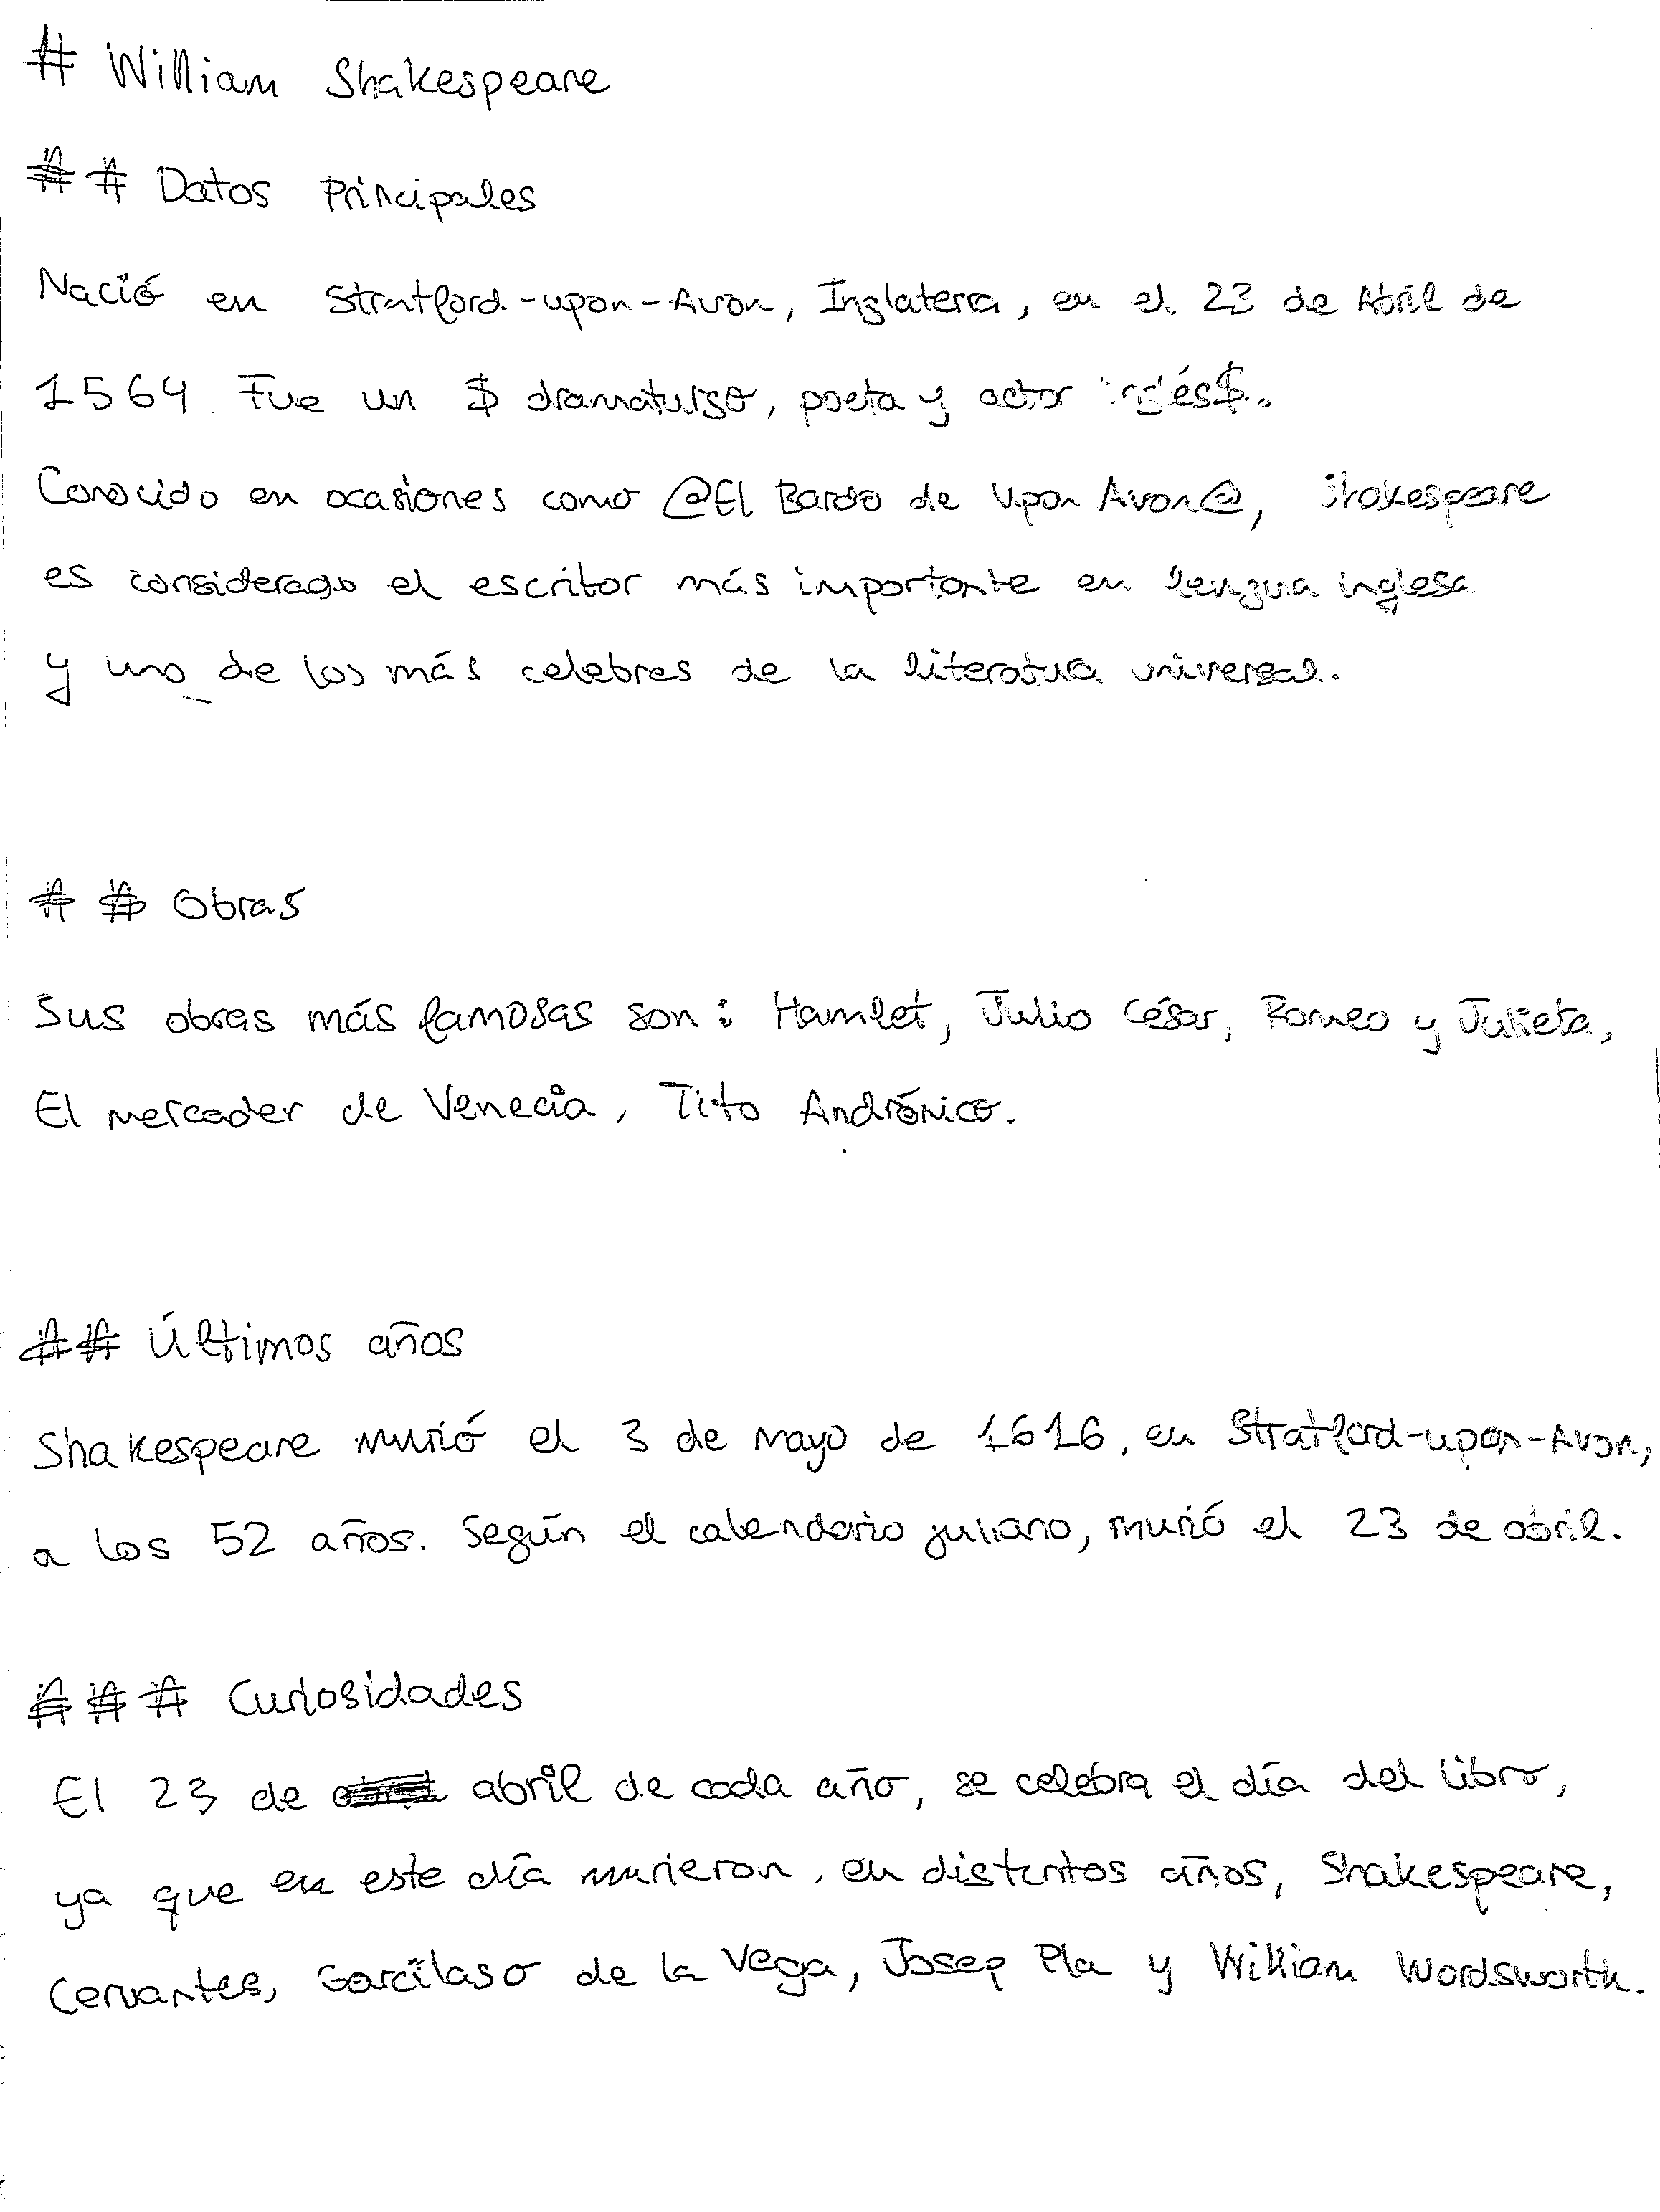 # William Shakespeare
## Datos Principales
Nació en Stratford-upon-Avon, Inglaterra, en el 23 de Abril de
1564. Fue un $ dramaturgo, poeta y actor inglés$.
Conocido en ocasiones como @El Bardo de Upon Avon@, Shakespeare
es considerado el escritor más importante en lengua inglesa
y uno de los más celebres de la literatura universal.
## Obras
Sus obras más famosas son: Hamlet, Julio César, Romeo y Julieta,
El mercader de Venecia, Tito Andrónico.
## Últimos años
Shakespeare murió el 3 de mayo de 1616, en Stratford-upon-Avon,
a los 52 años. Según el calendario juliano, murió el 23 de abril.
### Curiosidades
El 23 de abril de cada año, se celebra el día del libro,
ya que en este día murieron, en distintos años, Shakespeare,
Cervantes, Garcilaso de la Vega, Josep Pla y William Wordsworth.